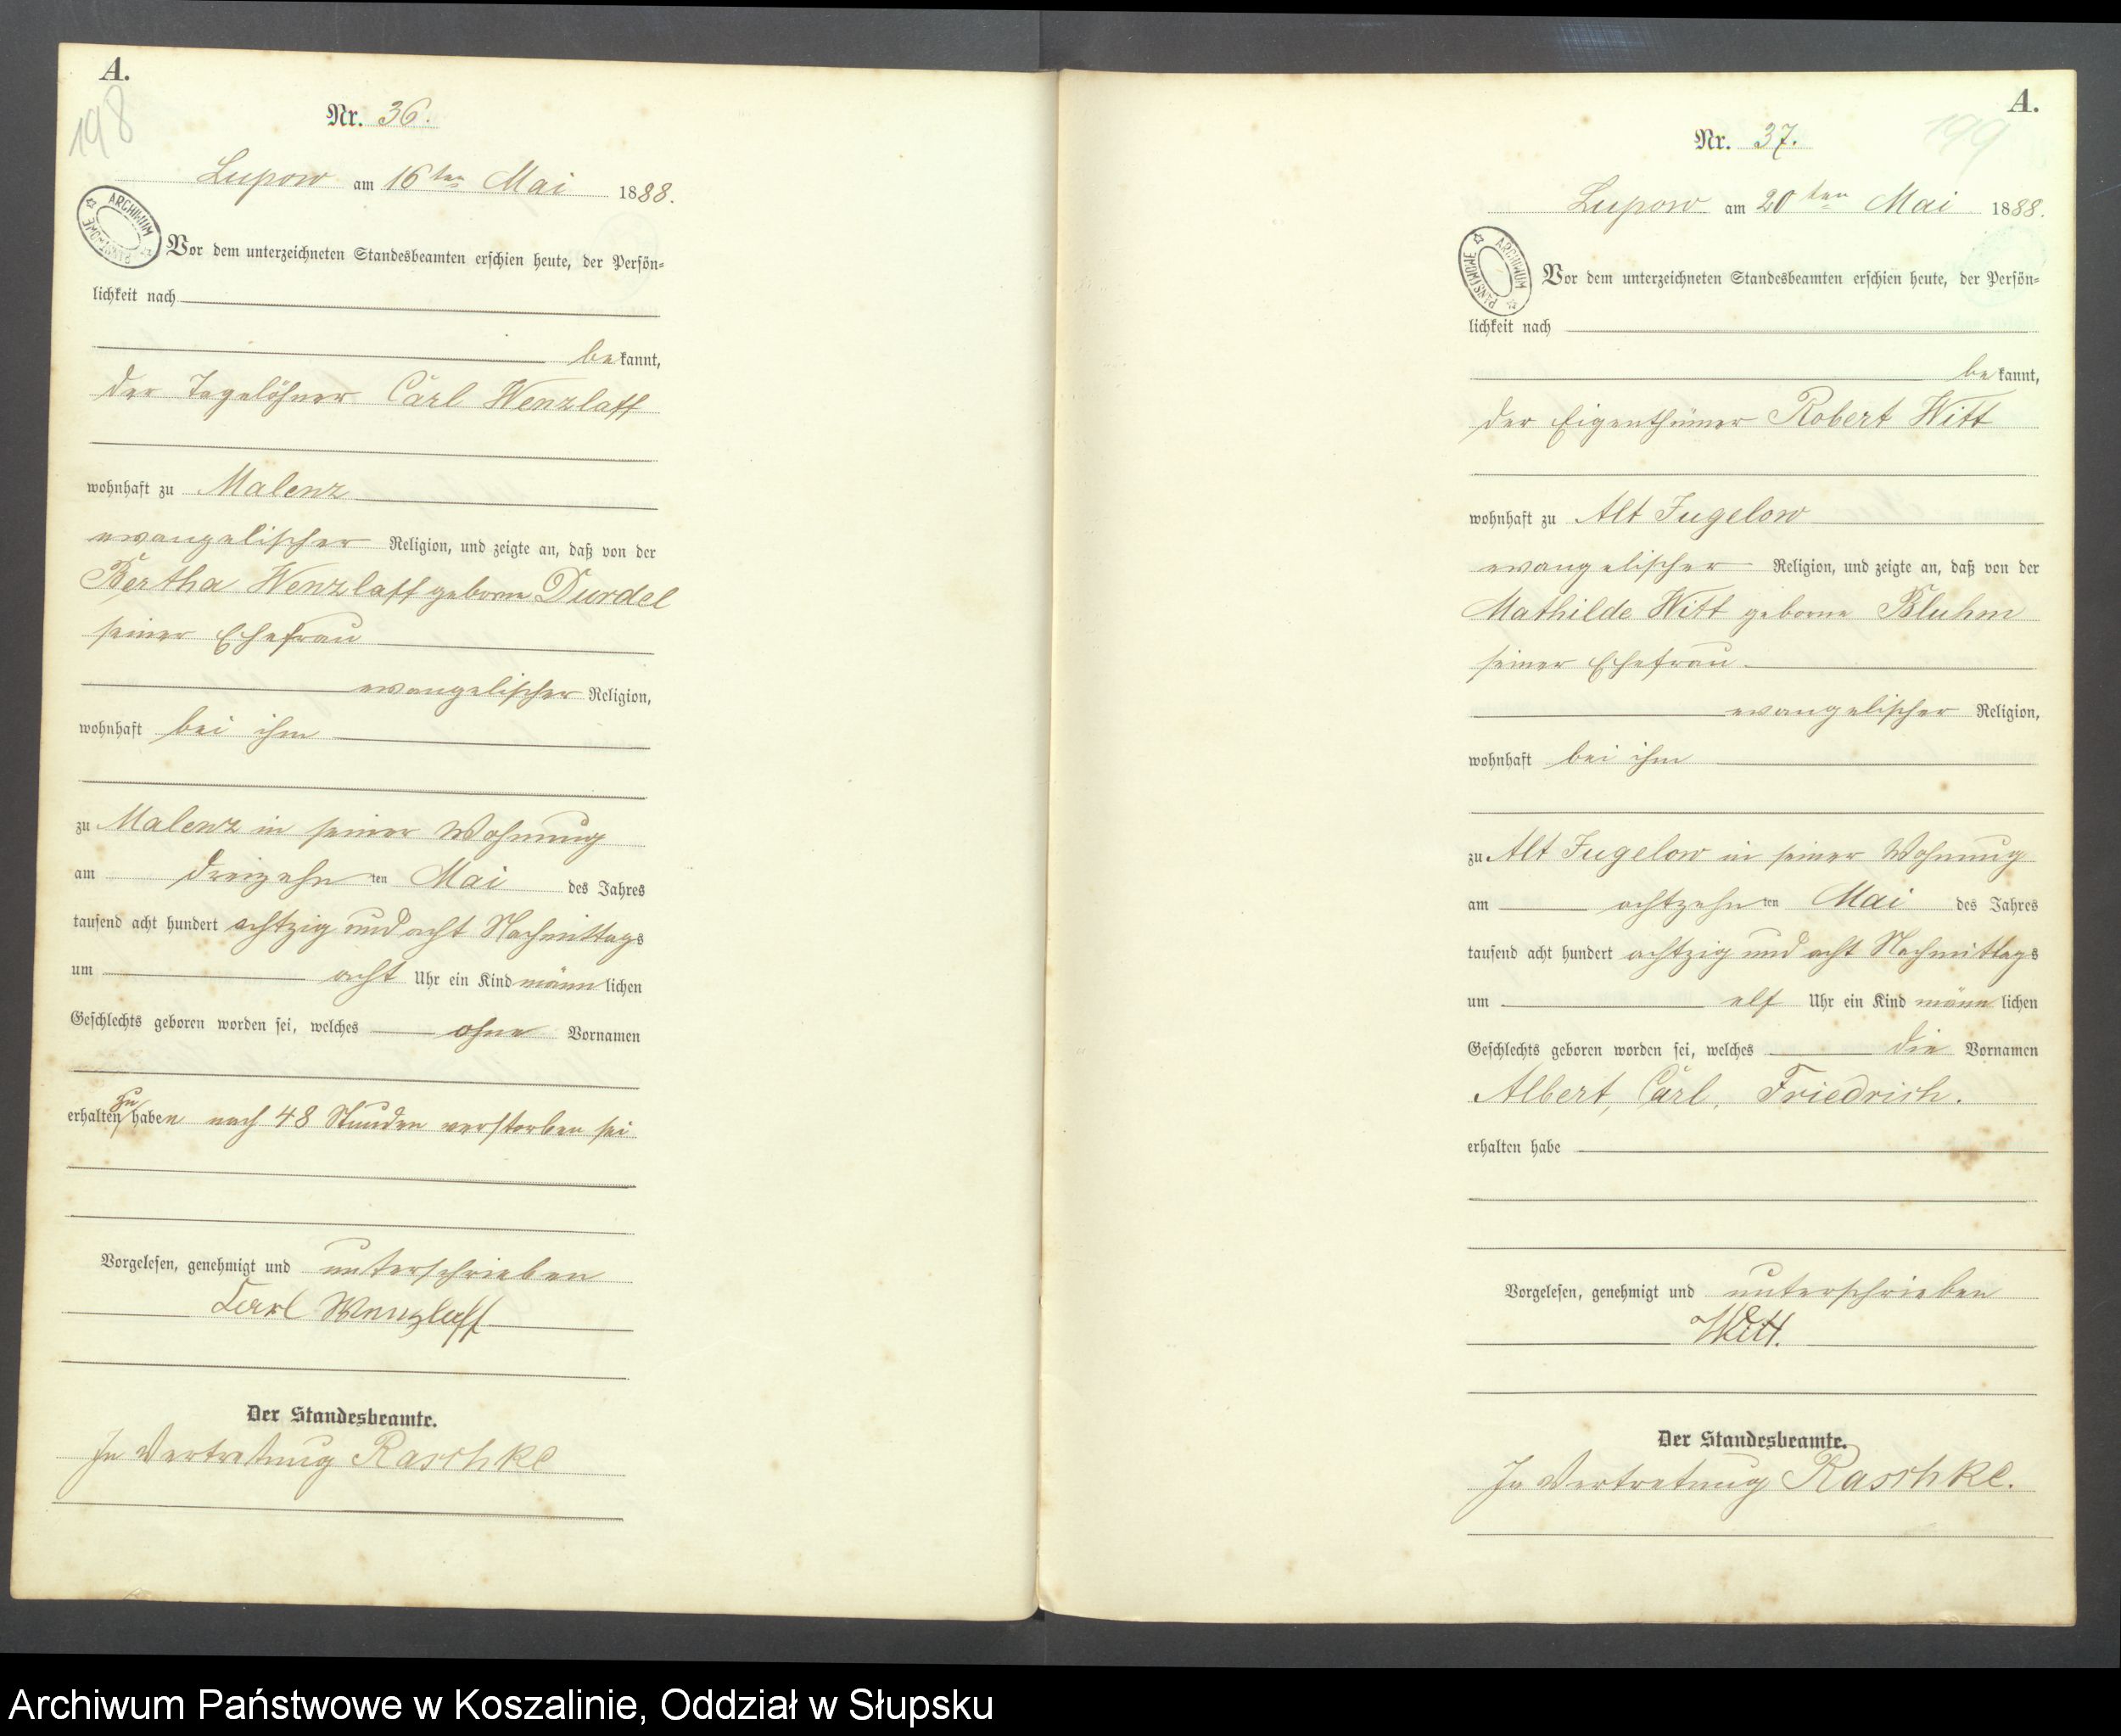 A.
198
Nr. 36.
Lupow am 16ten Mai 1888.
ARCHIWUM PAŃSTWOWE
Vor dem unterzeichneten Standesbeamten erschien heute, der Persön-
lichkeit nach
bekannt,
der Tagelöhner Carl Wenzlaff
wohnhaft zu Malenz
evangelischer Religion, und zeigte an, daß von der
Bertha Wenzlaff geborne Durdel
seiner Ehefrau
evangelischer Religion,
wohnhaft bei ihm
zu Malenz in seiner Wohnung
am dreizehnten Mai des Jahres
tausend acht hundert achtzig und acht Nachmittags
um acht Uhr ein Kind männlichen
Geschlechts geboren worden sei, welches ohne Vornamen
erhalten zu haben nach 48 Stunden verstorben sei
Vorgelesen, genehmigt und unterschrieben
Carl Wenzlaff
Der Standesbeamte.
In Vertretung Raschke
A.
199
Nr. 37.
Lupow am 20ten Mai 1888.
ARCHIWUM PAŃSTWOWE
Vor dem unterzeichneten Standesbeamten erschien heute, der Persön-
lichkeit nach
bekannt,
der Eigenthümer Robert Witt
wohnhaft zu Alt Jugelow
evangelischer Religion, und zeigte an, daß von der
Mathilde Witt geborne Bluhm
seiner Ehefrau
evangelischer Religion,
wohnhaft bei ihm
zu Alt Jugelow in seiner Wohnung
am achtzehnten Mai des Jahres
tausend acht hundert achtzig und acht Nachmittags
um elf Uhr ein Kind männlichen
Geschlechts geboren worden sei, welches die Vornamen
Albert, Carl, Friedrich.
erhalten habe
Vorgelesen, genehmigt und unterschrieben
Witt.
Der Standesbeamte.
In Vertretung Raschke.
Archiwum Państwowe w Koszalinie, Oddział w Słupsku